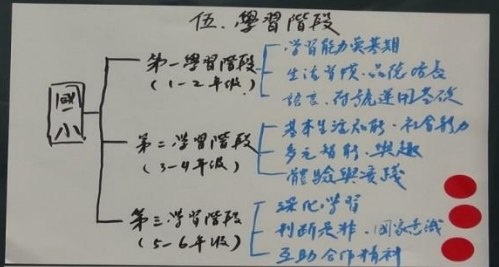 伍.學習階段
國小
第一學習階段
(1-2年級)
學習能力奠基期
生活習慣.品德培養
語言.符號運用基礎
第二學習階段
(3-4年級)
基本生活知能.社會能力
多元智能.興趣
體驗與實踐
第三學習階段
(5-6年級)
深化學習
判斷是非.國家意識
互助合作精神